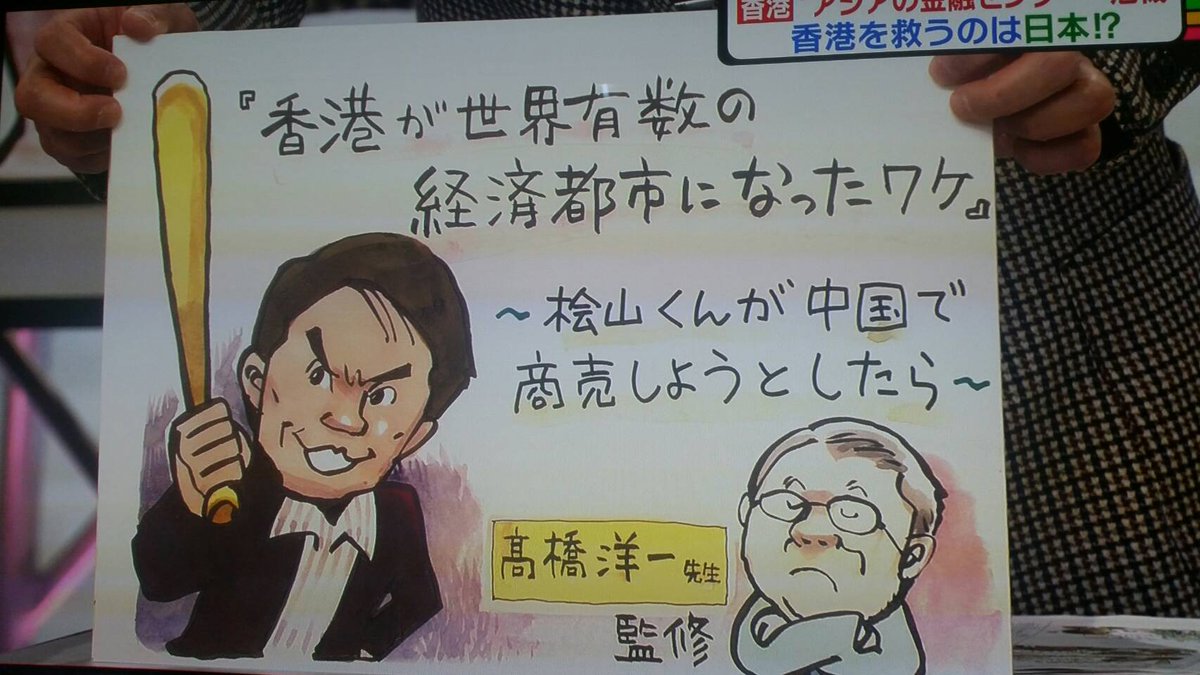 香港
"アジアの金融センター"危機
香港を救うのは日本!?
『香港が世界有数の
経済都市になったワケ』
~桧山くんが中国で
商売しようとしたら~
髙橋洋一先生
監修